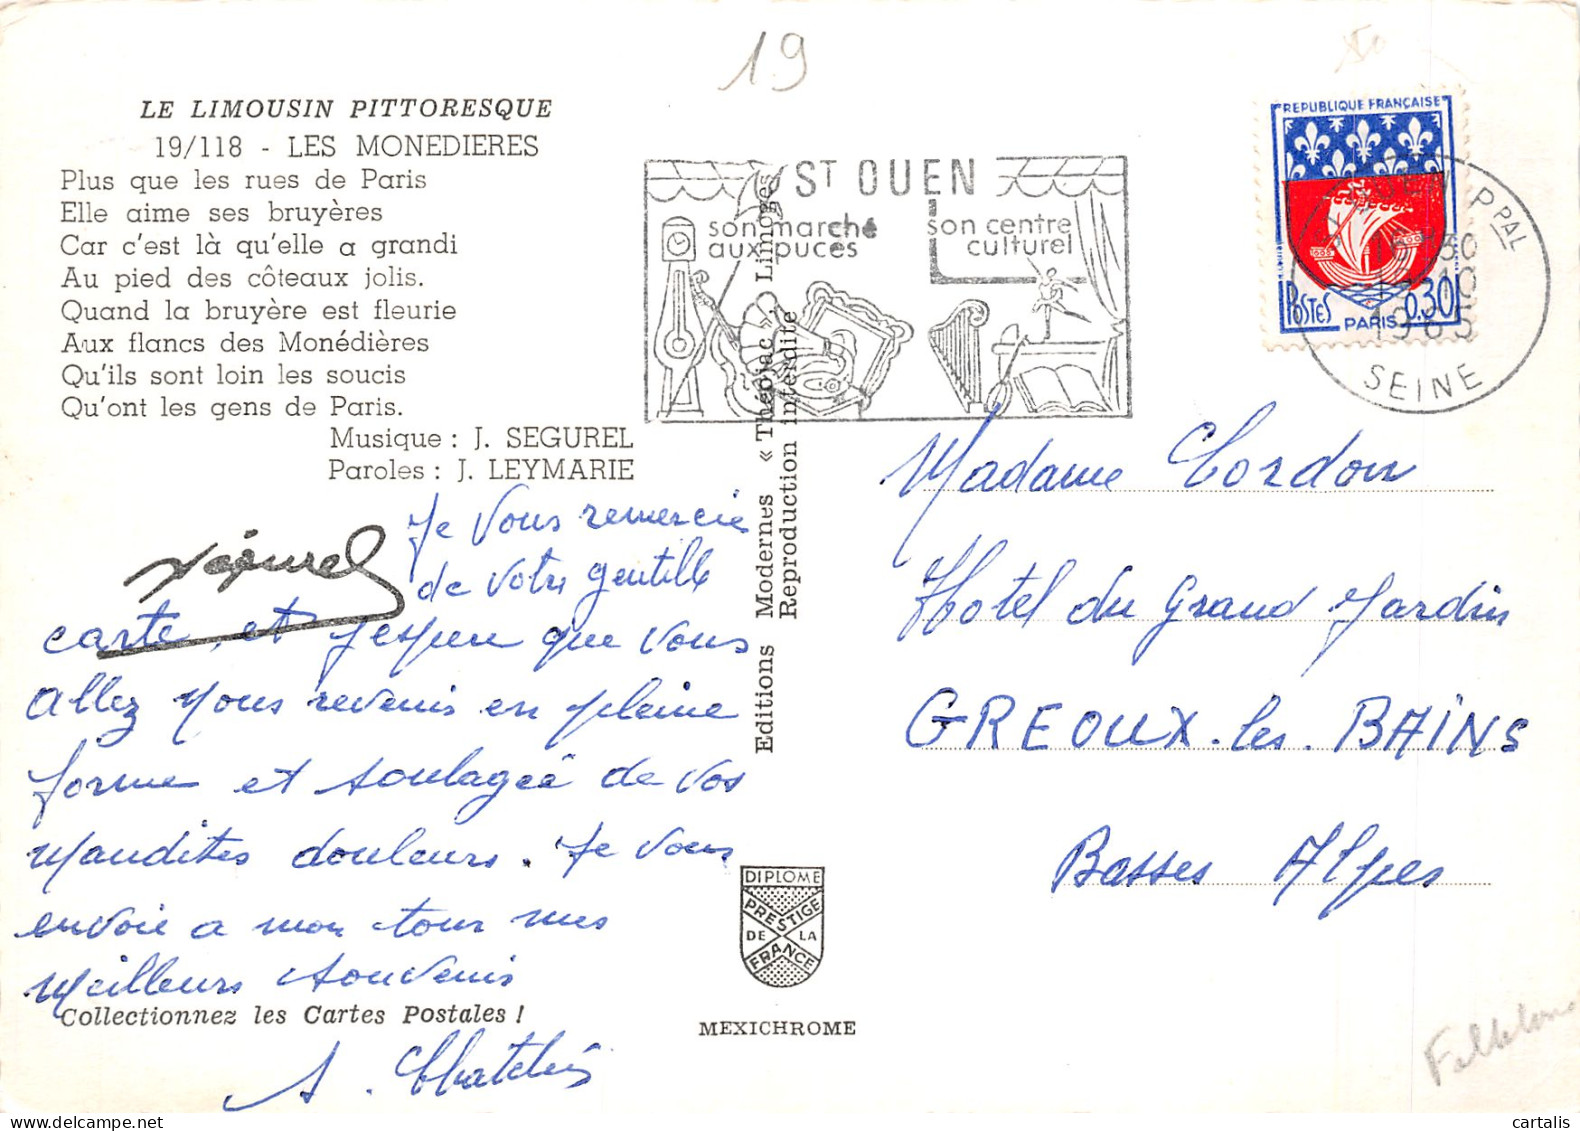 19
LE LIMOUSIN PITTORESQUE
19/118 - LES MONEDIERES
Plus que les rues de Paris
Elle aime ses bruyères
Car c'est là qu'elle a grandi
Au pied des côteaux jolis.
Quand la bruyère est fleurie
Aux flancs des Monédières
Qu'ils sont loin les soucis
Qu'ont les gens de Paris.
Musique : J. SEGUREL
Paroles : J. LEYMARIE
Ségurel
Je vous remercie
de votre gentille
carte, et j'espere que vous
allez nous revenir en pleine
forme et soulagée de vos
maudites douleurs. Je vous
envoie a mon tour mes
meilleurs souvenirs
Collectionnez les Cartes Postales !
Editions Modernes « Théojac » Limoges
Reproduction interdite
DIPLOME
PRESTIGE
DE LA
FRANCE
MEXICHROME
ST OUEN
son marché
aux puces
son centre
culturel
REPUBLIQUE FRANÇAISE
POSTES
0,30
PARIS
OUEN PPAL
16 30
10
1965
SEINE
Madame Cordon
Hotel du Grand Jardin
GREOUX.les.BAINS
Basses Alpes
cartalis